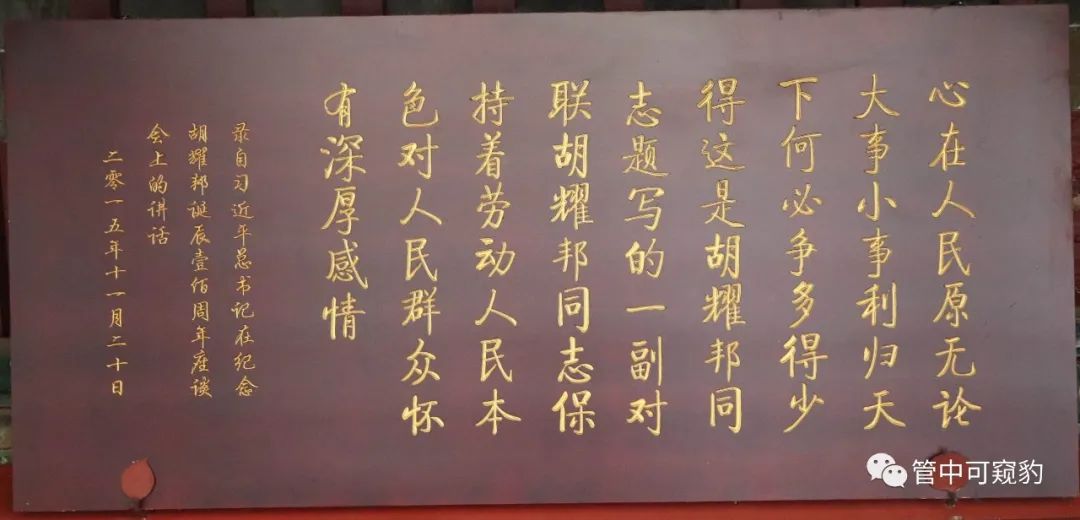 心在人民原无论
大事小事利归天
下何必争多得少
得这是胡耀邦同
志题写的一副对
联胡耀邦同志保
持着劳动人民本
色对人民群众怀
有深厚感情
录自习近平总书记在纪念
胡耀邦诞辰壹佰周年座谈
会上的讲话
二零一五年十一月二十日
管中可窥豹